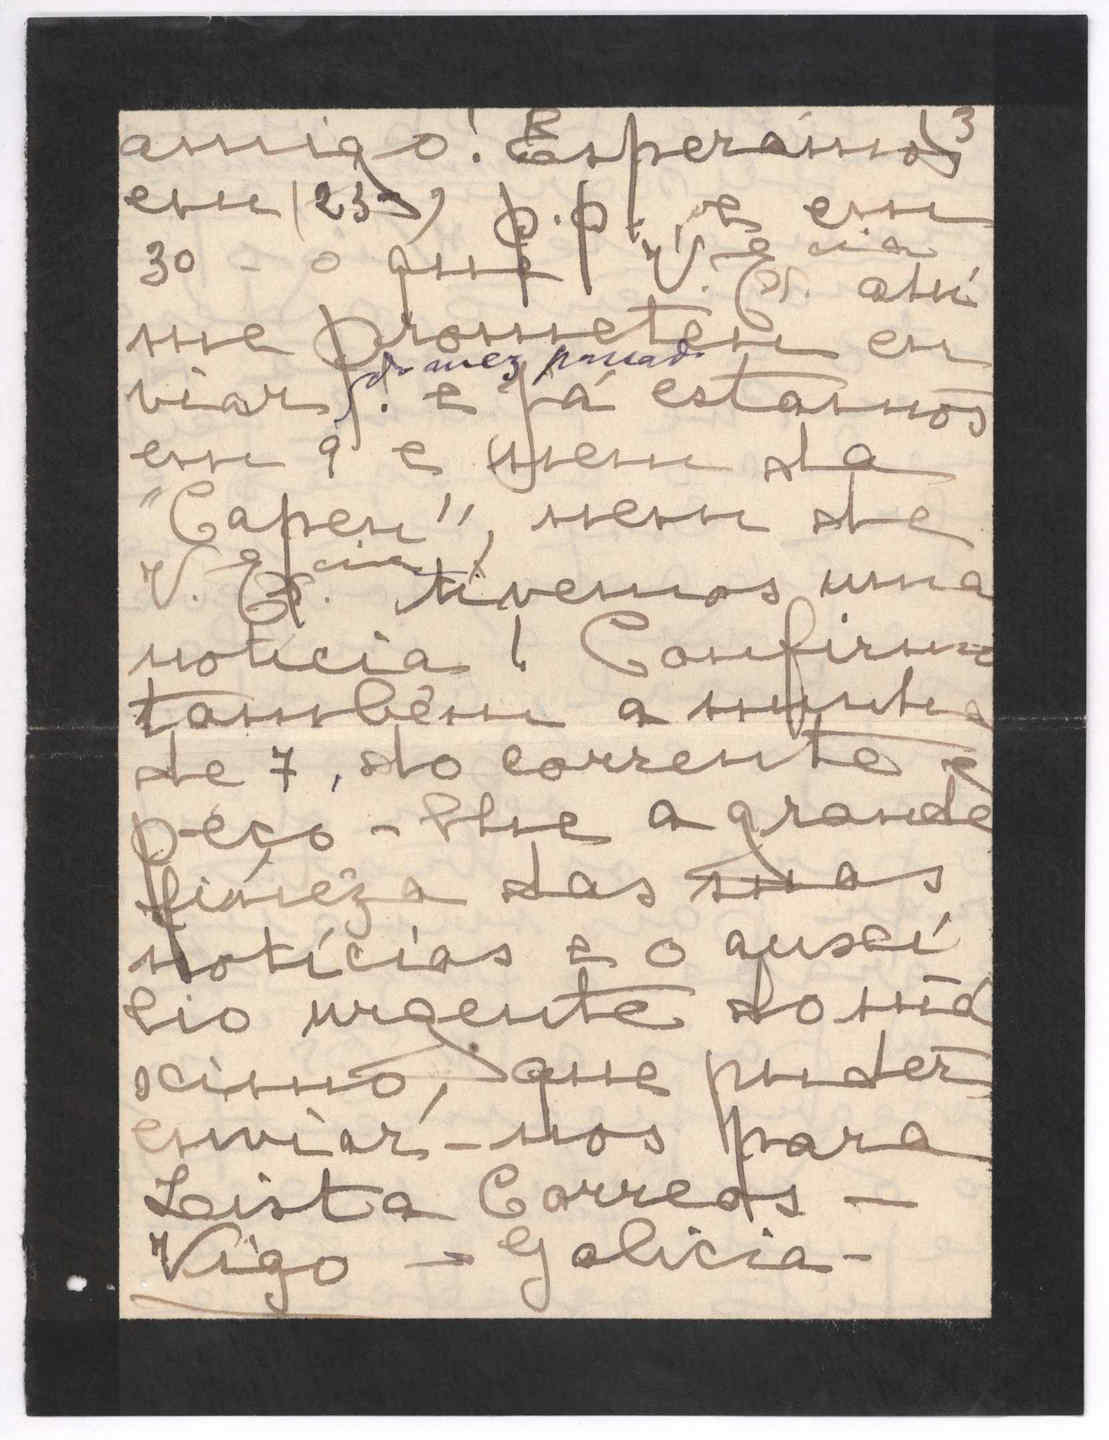 3
amigo! Esperámos
em (23) p.p. e em
30 - o que V. Ex.cia ahi
me prometeu en
do mez passado
viar. e já estamos
em 9 e nem da
"Capen", nem de
V. Ex.cia tivemos uma
notícia! Confirmo
tambêm a minha
de 7, do corrente e
péço-lhe a grande
finêza das suas
notícias e o auscí
lio urgente do má
scimo, que puder
enviár-nos para
Lista Correos -
Vigo - Galicia -